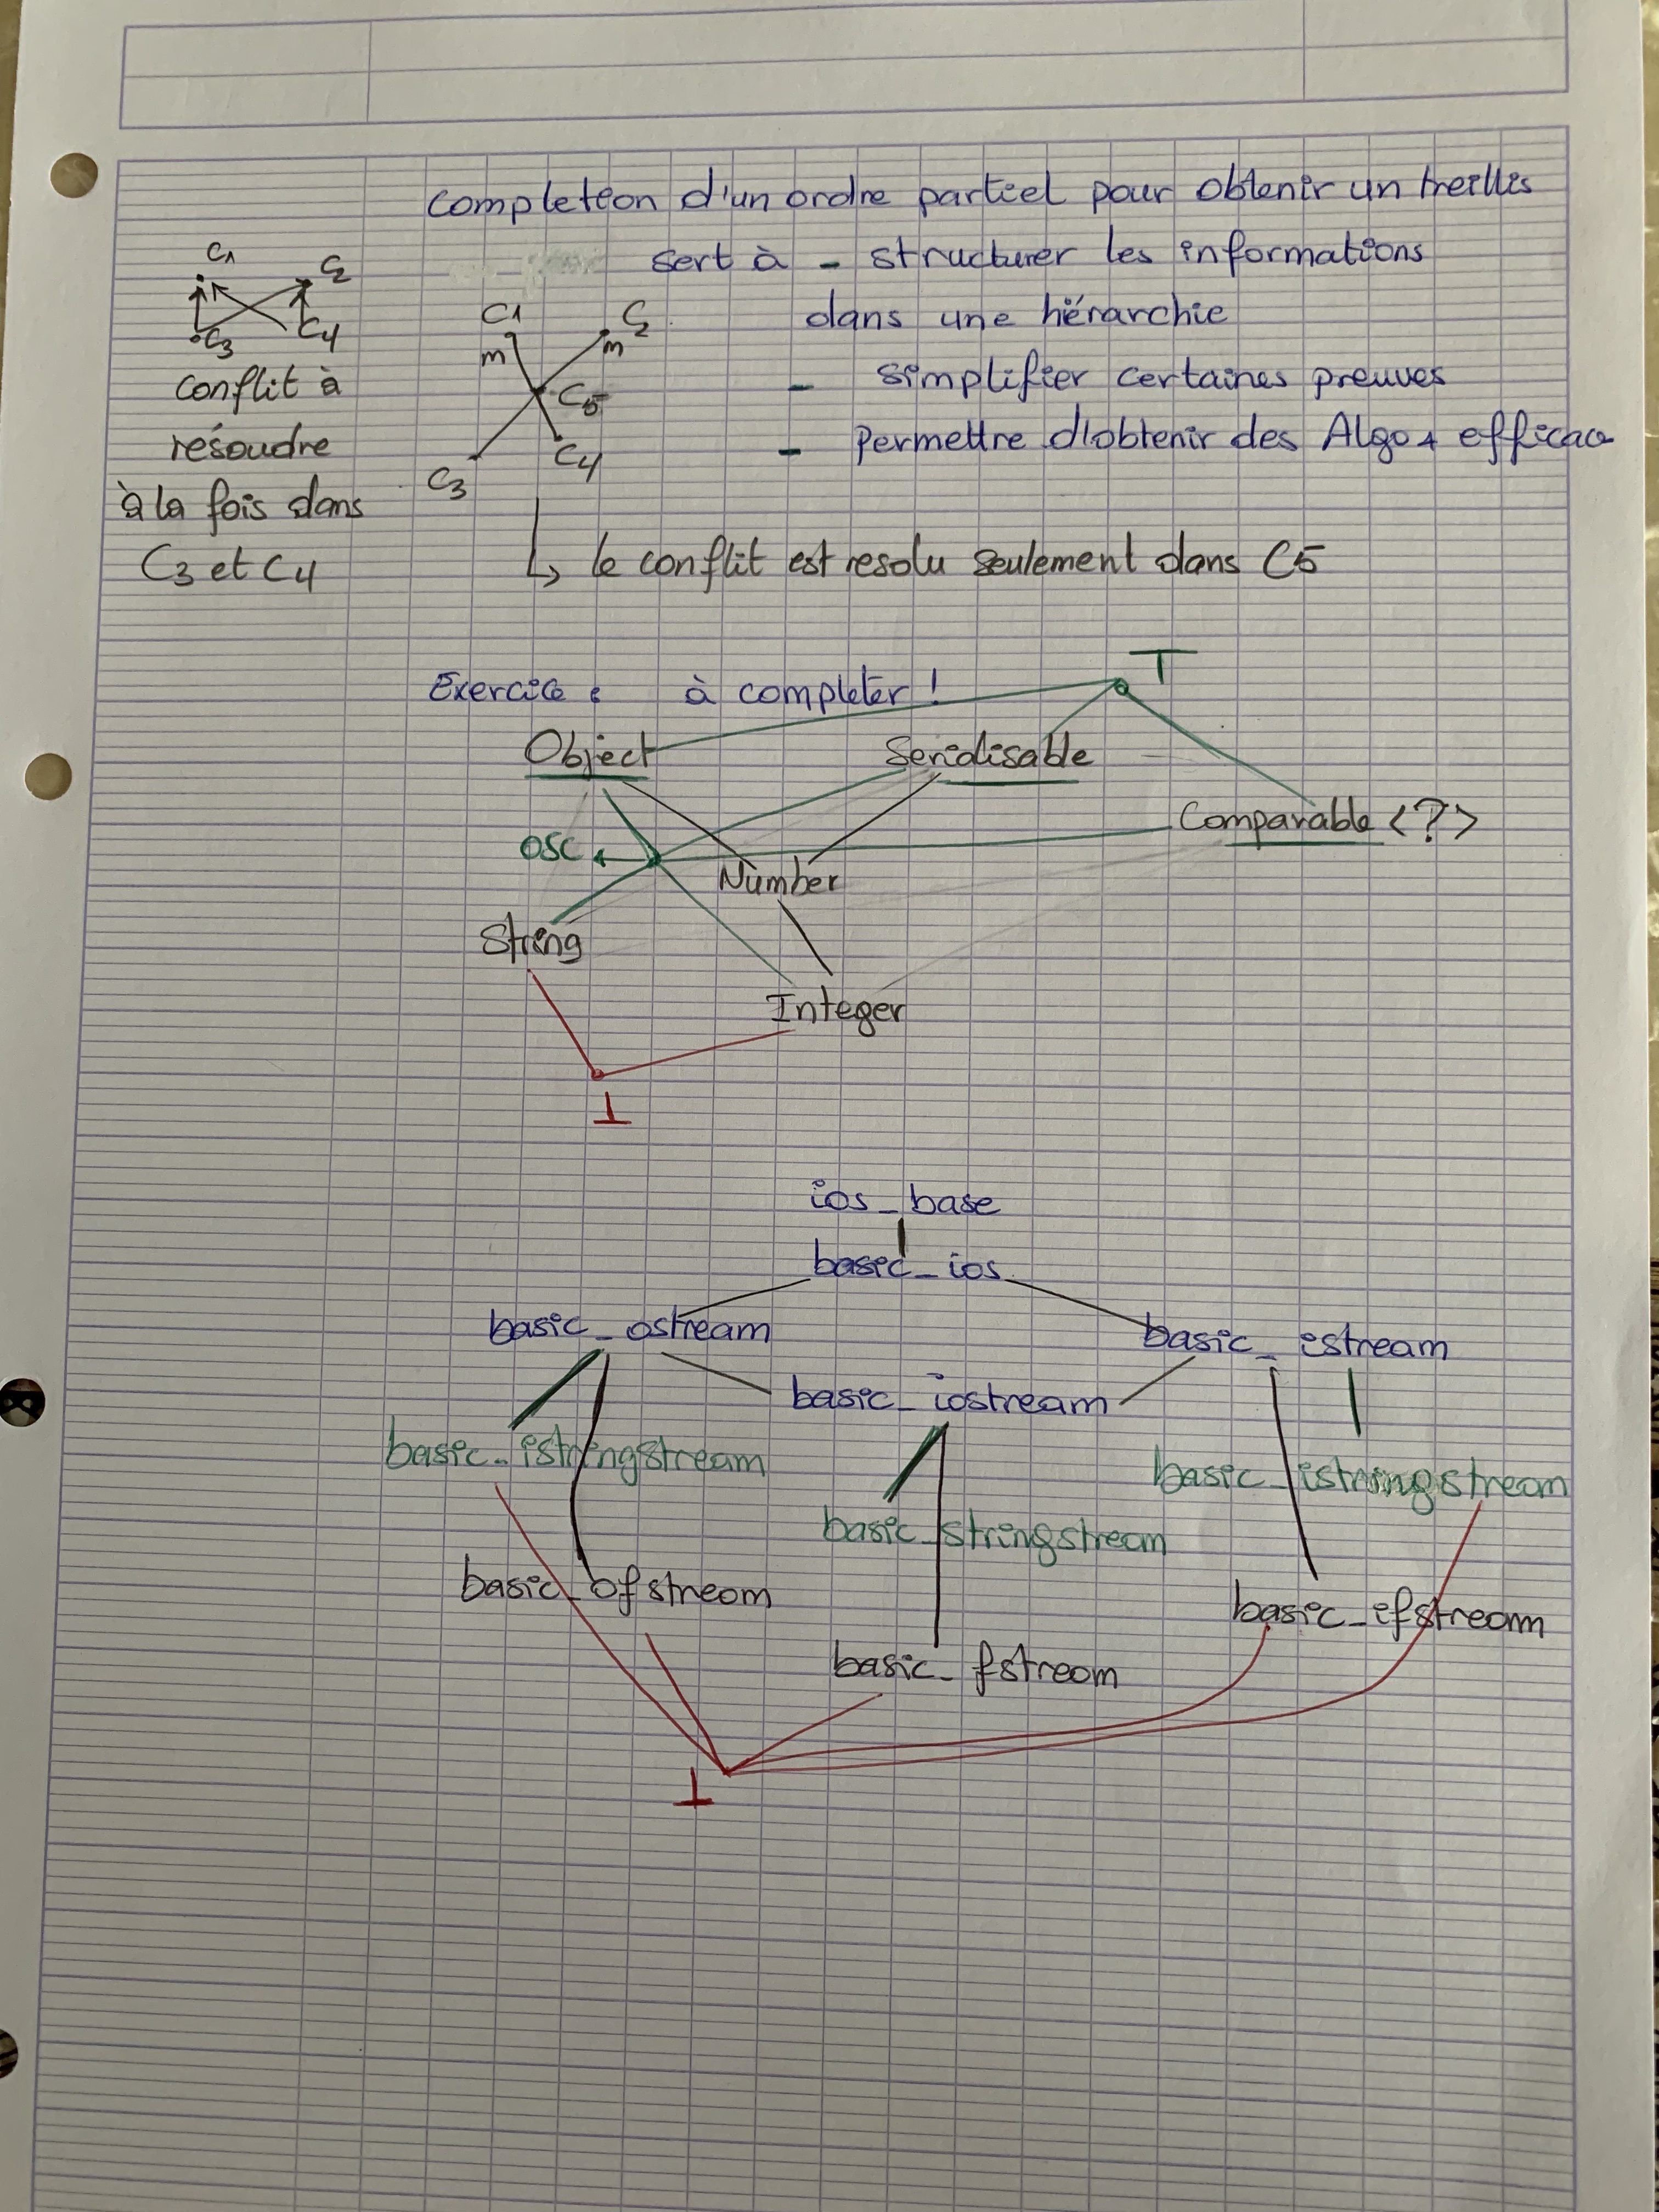 completion d'un ordre partiel pour obtenir un treillis
sert à - structurer les informations
dans une hiérarchie
- simplifier certaines preuves
- Permettre d'obtenir des Algo + efficace
C1
C2
C3
C4
conflit à
résoudre
à la fois dans
C3 et C4
C1
C2
m
m
C5
C3
C4
↳ le conflit est resolu seulement dans C5
Exercice : à completer !
T
Object
Serialisable
Comparable <?>
OSC
Number
String
Integer
⊥
ios_base
basic_ios
basic_ostream
basic_istream
basic_iostream
basic_istringstream
basic_istringstream
basic_stringstream
basic_ofstream
basic_ifstream
basic_fstream
⊥